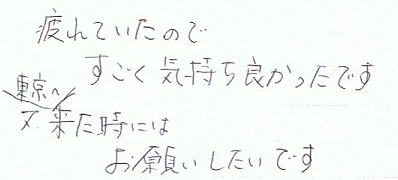 疲れていたので
すごく気持ち良かったです
東京へ
又来た時には
お願いしたいです